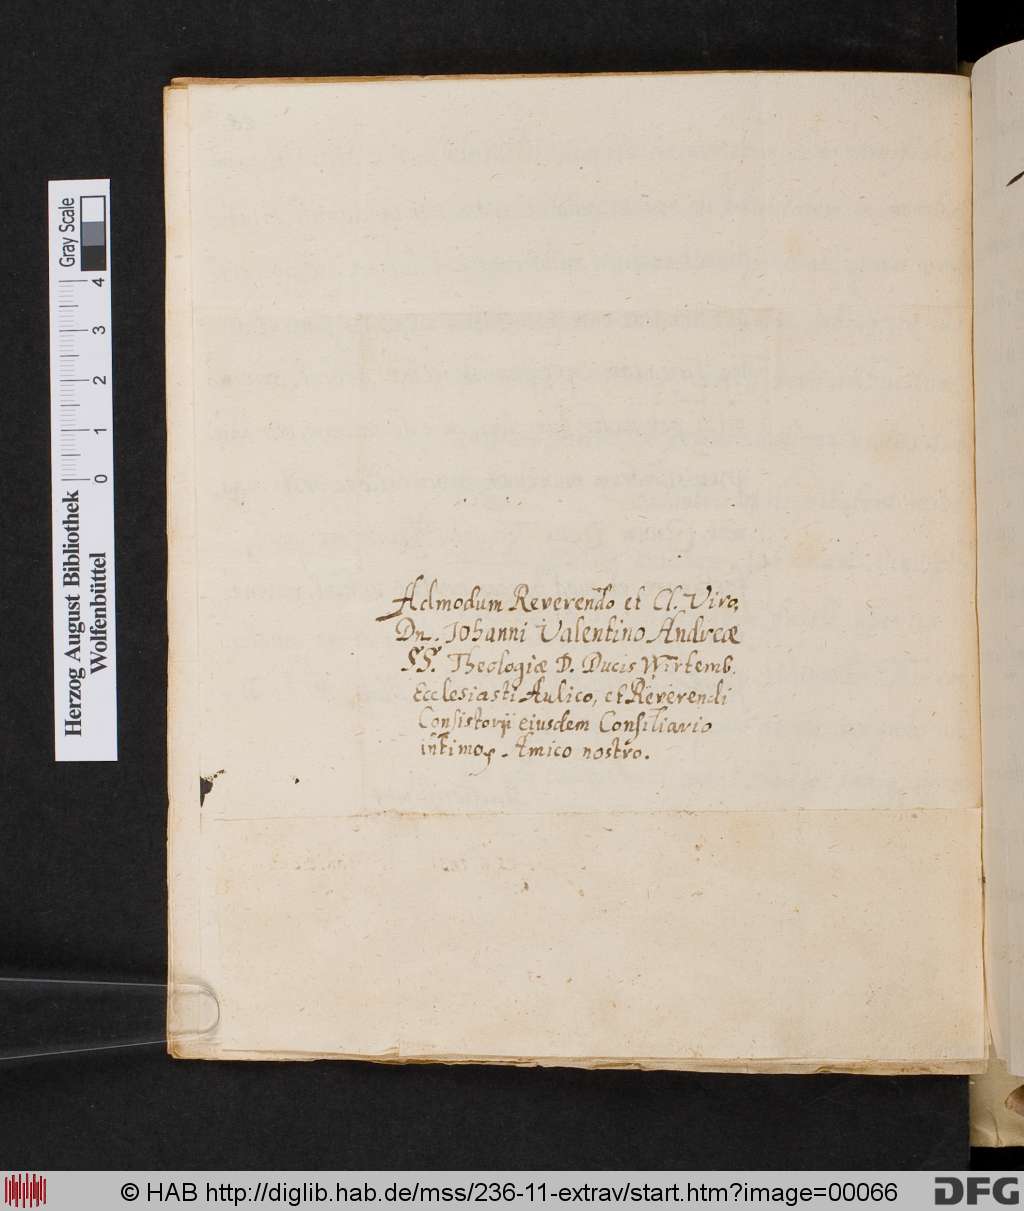 Gray Scale
0 1 2 3 4
Herzog August Bibliothek
Wolfenbüttel
Admodum Reverendo et Cl. Viro,
Dn. Iohanni Valentino Andreæ
SS. Theologiæ D. Ducis Wirtemb.
Ecclesiasti Aulico, et Reverendi
Consistorij eiusdem Consiliario
intimo, Amico nostro.
© HAB http://diglib.hab.de/mss/236-11-extrav/start.htm?image=00066
DFG